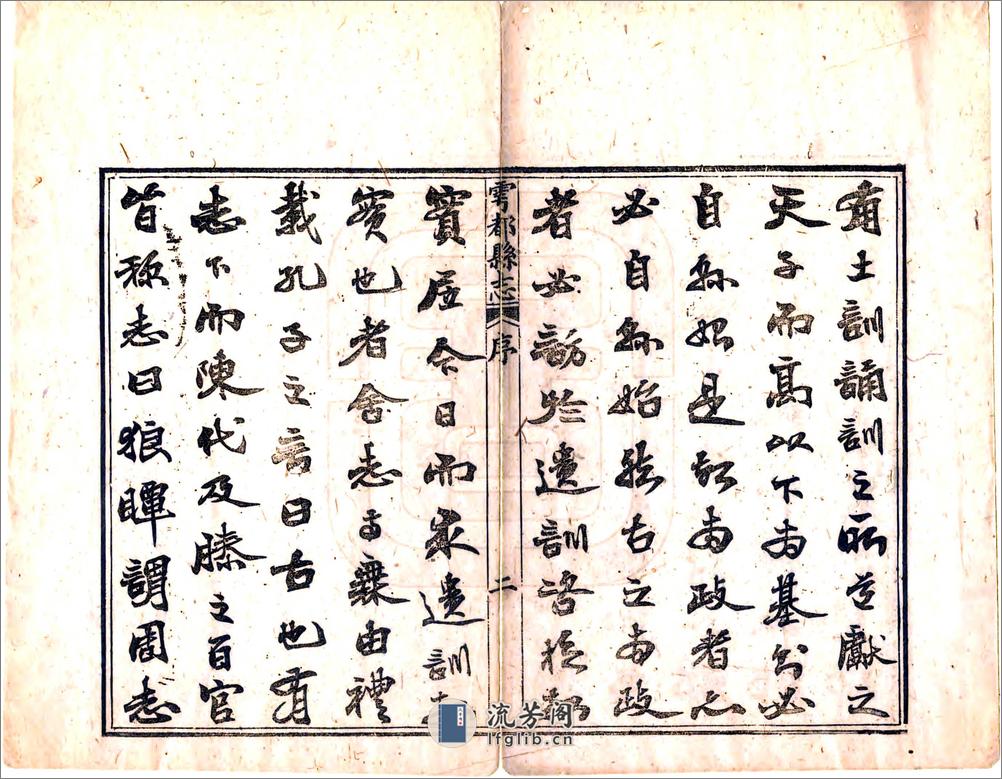 有土訓誦訓之所獻之
天子而高以下為基必
自縣始是故為政者
必自縣始然古之為政
者必訪於遺訓咨於故
雩都縣志
序
二
實居今日而求遺訓故
實也者舍志無由禮
載孔子之言曰古也有
志下而陳代及滕之百官
皆稱志曰狼瞫謂周志
流芳阁
lfglib.cn